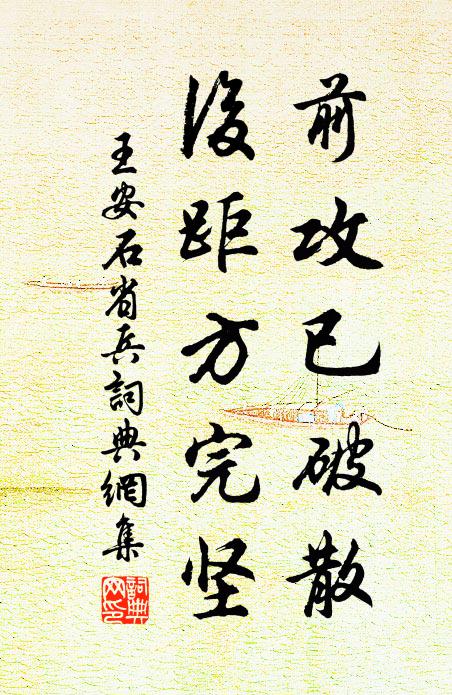 前攻已破散
後距方完坚
王安石省兵詞典網集
詞典网印